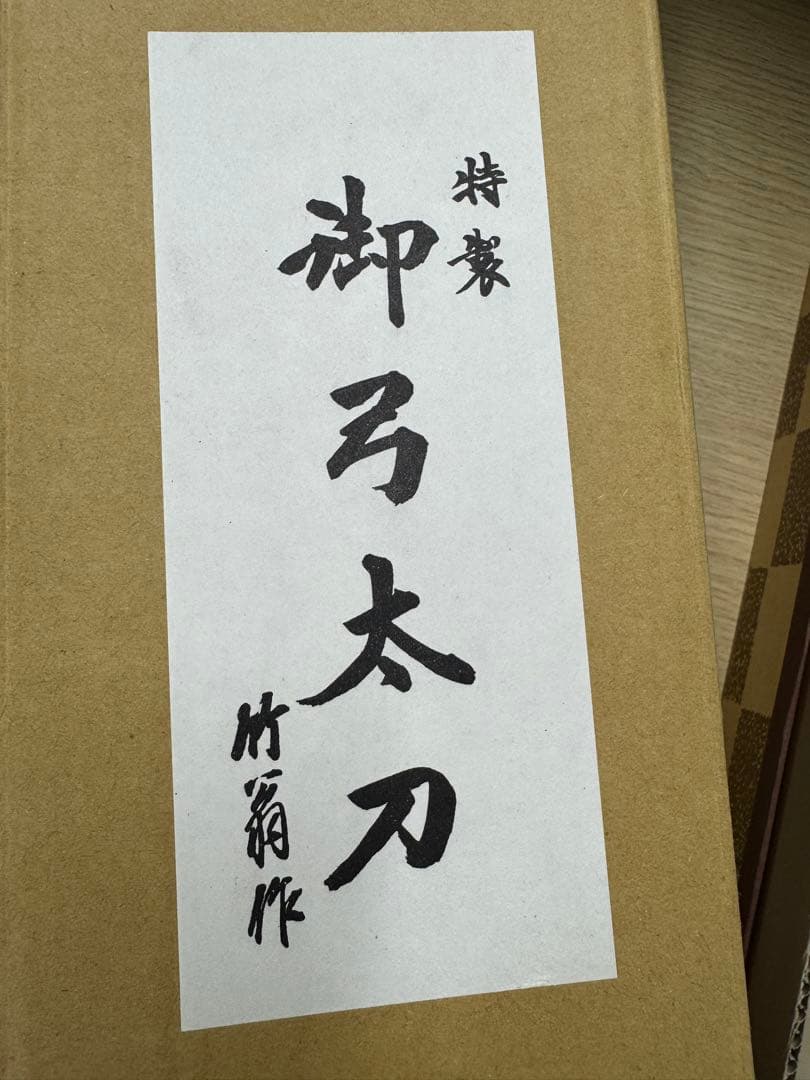 特製
御弓太刀
竹翁作